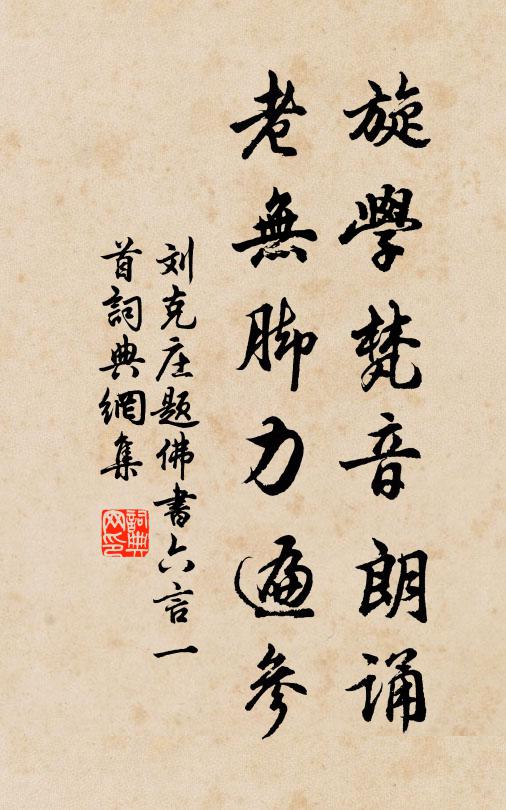 旋學梵音朗誦
老無脚力遍參
刘克庄题佛書六言一
首詞典網集
詞典网印